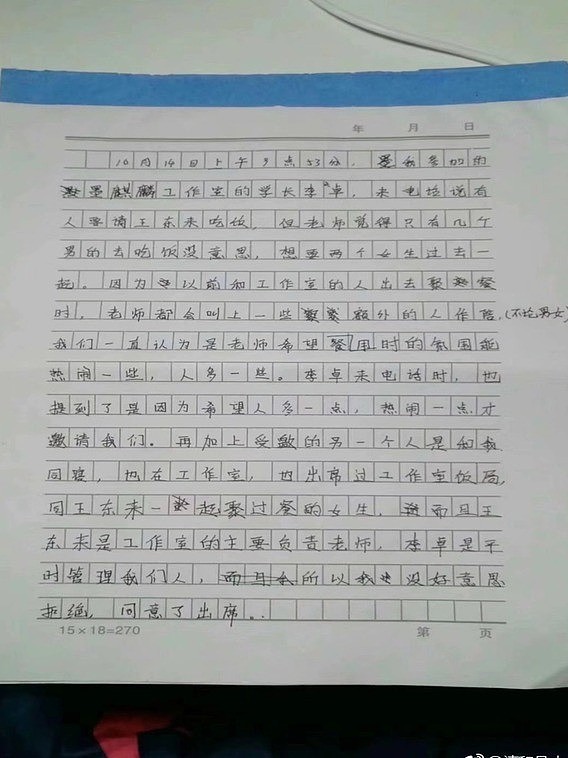 年 月 日
10月14日上午9点53分，我参加的
墨麒麟工作室的学长李卓，来电话说有
人要请王东来吃饭，但老师觉得只有几个
男的去吃饭没意思，想要两个女生过去一
起。因为以前和工作室的人出去聚餐
时，老师都会叫上一些额外的人作陪，(不论男女)
我们一直认为是老师希望餐用时的氛围能
热闹一些，人多一些。李卓来电话时，也
提到了是因为希望人多一点，热闹一点才
邀请我们。再加上受邀的另一个人是和我
同寝，也在工作室，也出席过工作室饭局，
同王东来一起聚过餐的女生，而且王
东来是工作室的主要负责老师，李卓是平
时管理我们人，所以我没好意思
拒绝，同意了出席。
15×18=270 第 页